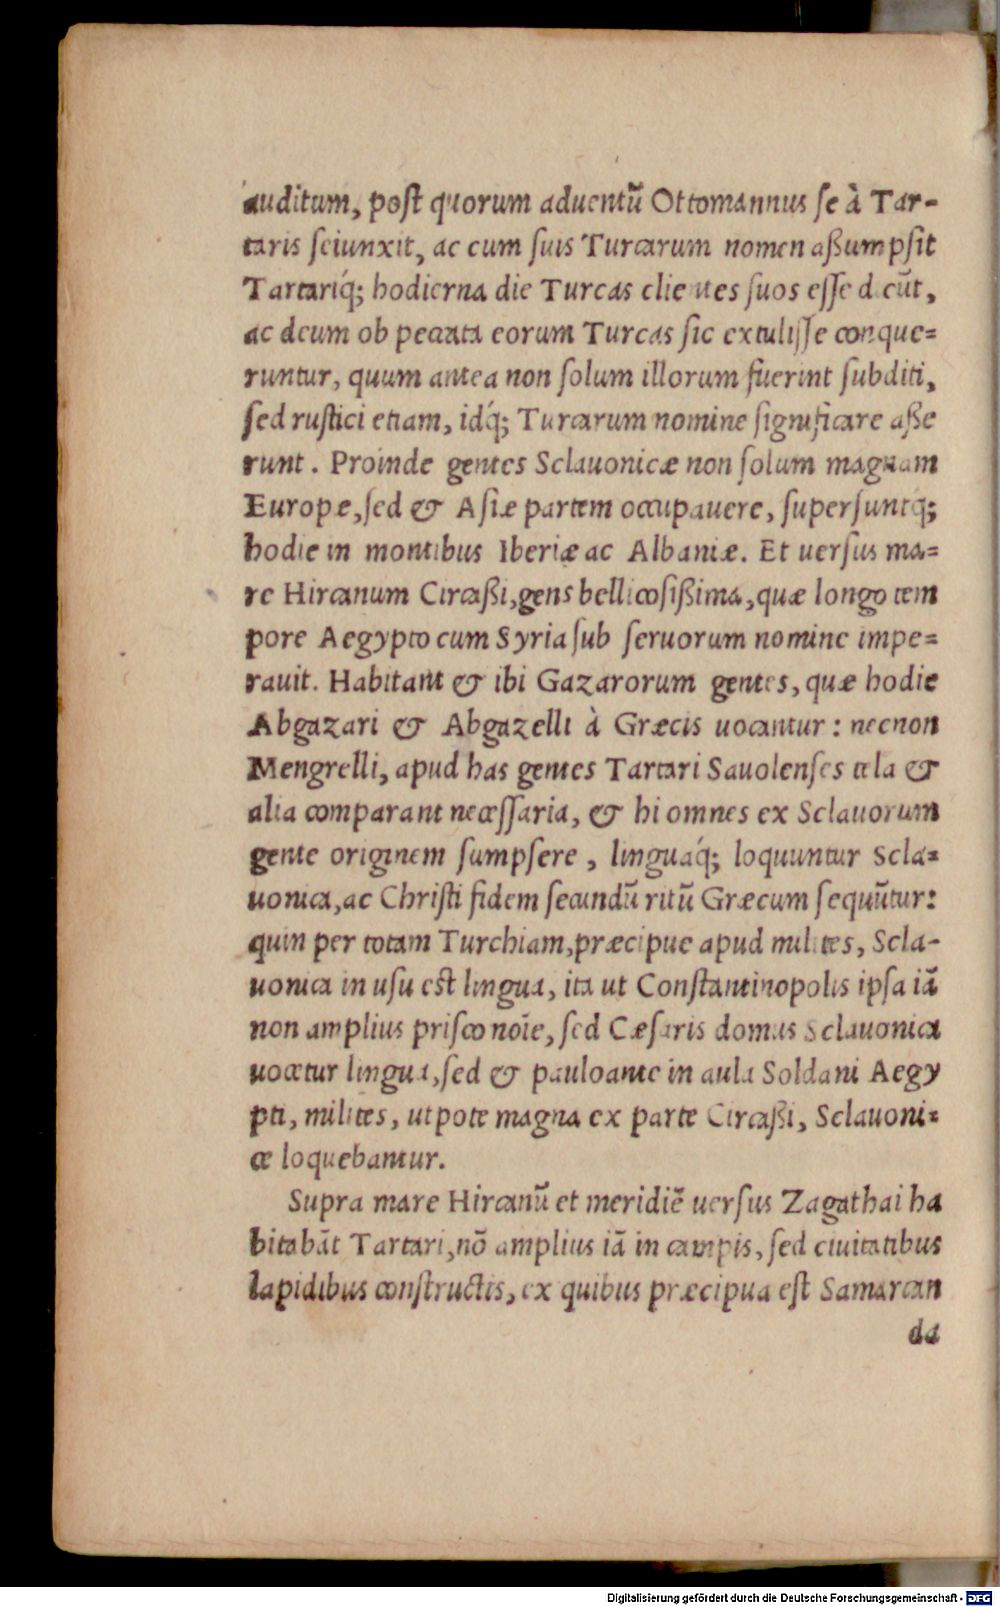 auditum, post quorum aduentũ Ottomannus se à Tar-
taris seiunxit, ac cum suis Turcarum nomen aßumpsit
Tartariq́; hodierna die Turcas clientes suos esse dicũt,
ac deum ob peccata eorum Turcas sic extulisse conque=
runtur, quum antea non solum illorum fuerint subditi,
sed rustici etiam, idq́; Turcarum nomine significare aße
runt. Proinde gentes Sclauonicæ non solum magnam
Europæ, sed & Asiæ partem occupauere, supersuntq́;
hodie in montibus Iberiæ ac Albaniæ. Et uersus ma=
re Hircanum Circaßi, gens bellicosißima, quæ longo tem
pore Aegypto cum Syria sub seruorum nomine impe=
rauit. Habitant & ibi Gazarorum gentes, quæ hodie
Abgazari & Abgazelli à Græcis uocantur: necnon
Mengrelli, apud has gentes Tartari Sauolenses tela &
alia comparant necessaria, & hi omnes ex Sclauorum
gente originem sumpsere, linguaq́; loquuntur Scla=
uonica, ac Christi fidem secundũ ritũ Græcum sequũtur:
quin per totam Turchiam, præcipue apud milites, Scla-
uonica in usu est lingua, ita ut Constantinopolis ipsa iã
non amplius prisco noĩe, sed Cæsaris domus Sclauonica
uocetur lingua, sed & pauloante in aula Soldani Aegy
pti, milites, utpote magna ex parte Circaßi, Sclauoni=
ce loquebantur.
Supra mare Hircanũ et meridiẽ uersus Zagathai ha
bitabãt Tartari, nõ amplius iã in campis, sed ciuitatibus
lapidibus constructis, ex quibus præcipua est Samarcan
da
Digitalisierung gefördert durch die Deutsche Forschungsgemeinschaft - DFG